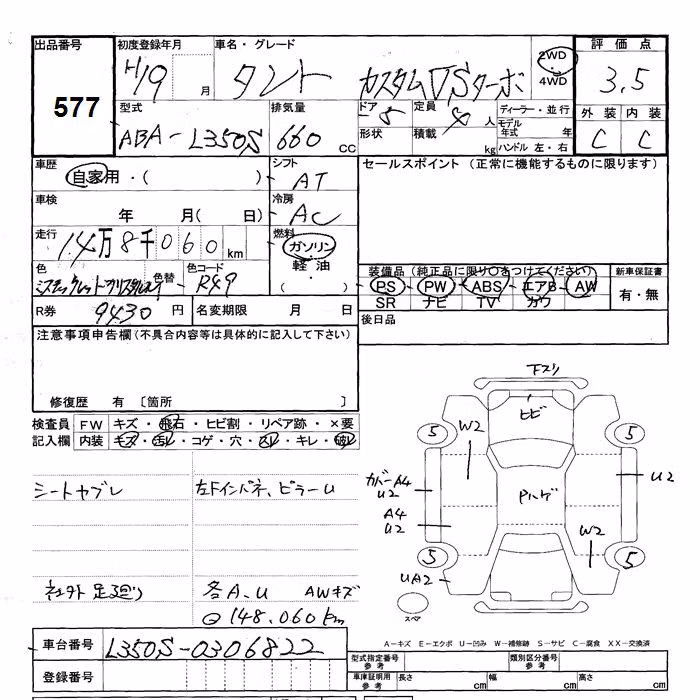 出品番号 初度登録年月 車名・グレード 評価点
577 H19 月 タント カスタムVSターボ 2WD 4WD 3.5
型式 排気量 ドア 定員 ディーラー・並行 外装 内装
ABA-L350S 660 CC 5 4 人 モデル年式 年 C C
形状 積載 kg ハンドル 左・右
車歴 自家用・( ) シフト AT セールスポイント (正常に機能するものに限ります)
車検 年 月( 日) 冷房 AC
走行 14万8千060km 燃料 ガソリン
軽油
( )
色 色替 色コード R49 装備品(純正品に限り○をつけてください) 新車保証書
PS PW ABS エアB AW 有・無
SR ナビ TV カワ
R券 9430 円 名変期限 月 日 後日品
注意事項申告欄(不具合内容等は具体的に記入して下さい)
修復歴 有 〔箇所 〕
検査員 FW キズ・飛石・ヒビ割・リペア跡・×要
記入欄 内装 キズ・汚レ・コゲ・穴・スレ・キレ・破レ
シートヤブレ 左Fインパネ、ピラーU
社外足廻り 各A、U AWキズ
148.060km
下スリ
ヒビ
5 W2 5
カバーA4 U2 Pハゲ U2
A4 U2
W2
5 5
UA2
スペア
A-キズ E-エクボ U-凹み W-補修跡 S-サビ C-腐食 XX-交換済
車台番号 L350S-0306822
型式指定番号 参考 類別区分番号 参考
登録番号 車庫証明用 参考 長さ cm 幅 cm 高さ cm